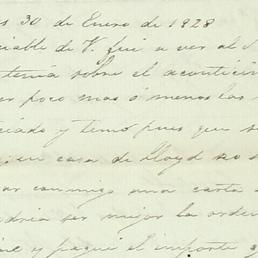 s 30 de Enero de 1828
ciable de V. fui a ver al S
tenia sobre el acontecim
er poco mas ó menos las
ciado y temo pues que s
en casa de Lloyd no s
ar conmigo una carta
odria ser mejor la orden
ue y pagué el importe q